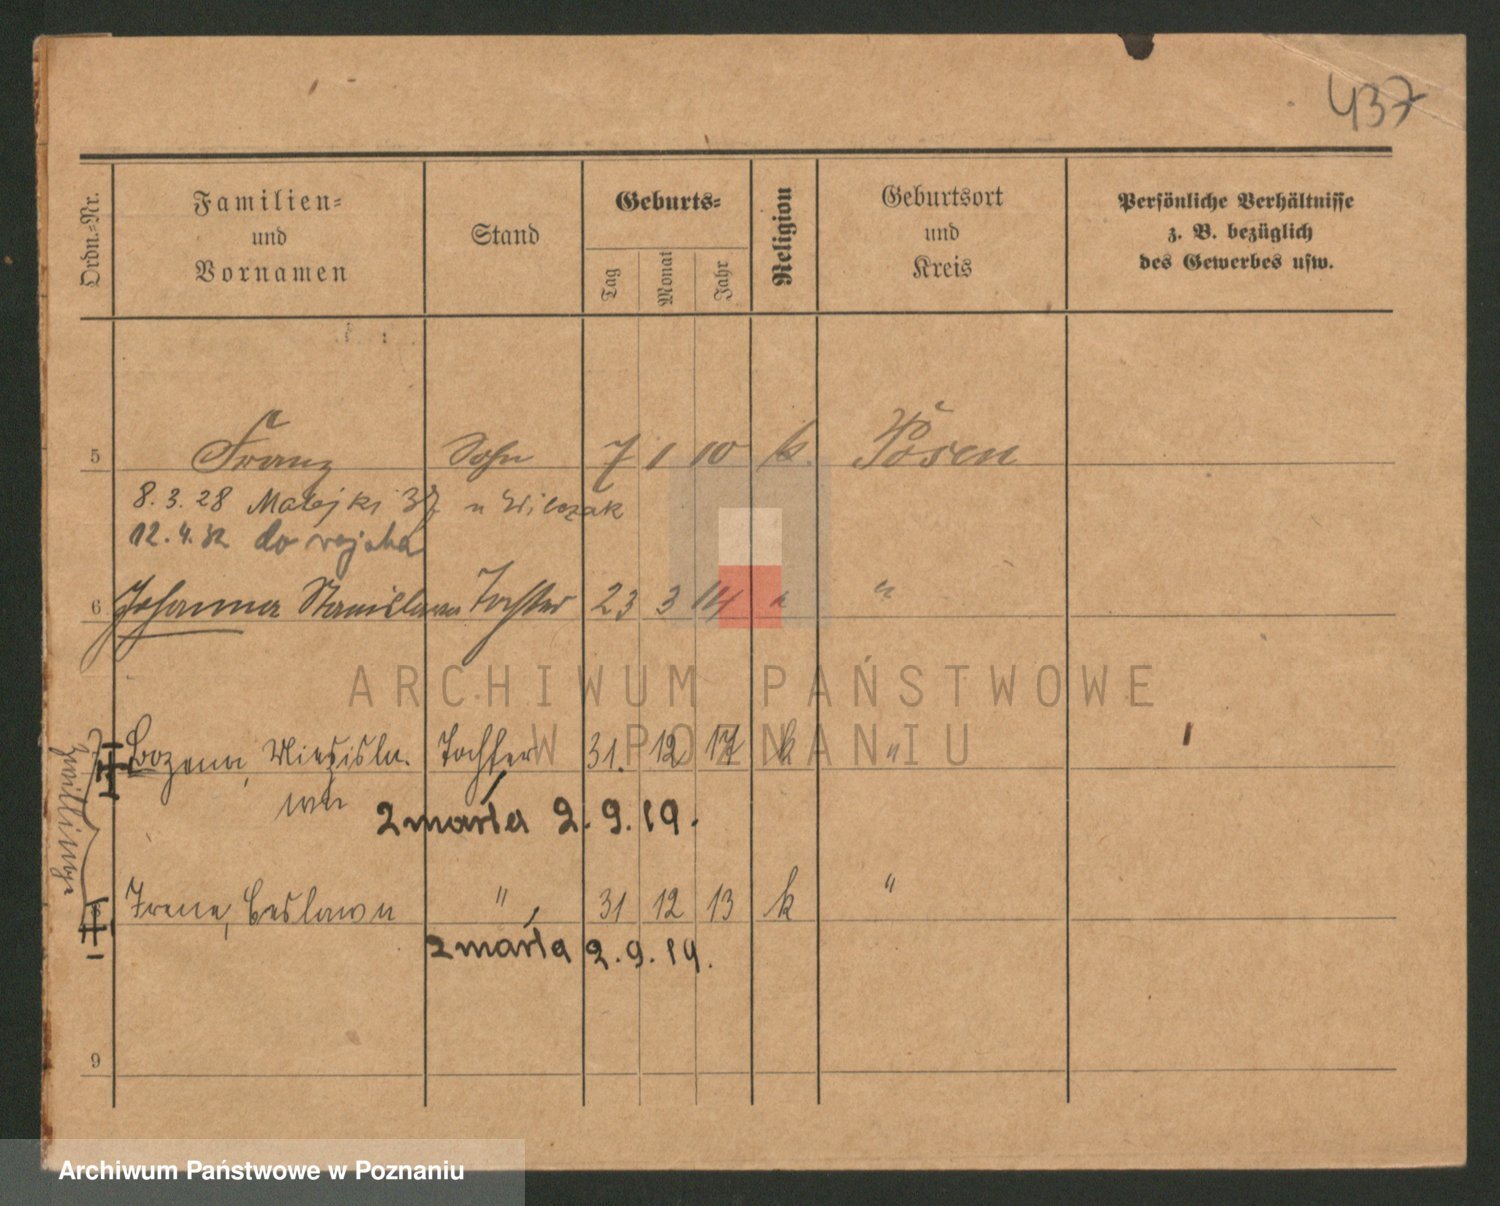 437
Ordn.-Nr.
Familien-
und
Vornamen
Stand
Geburts-
Tag
Monat
Jahr
Religion
Geburtsort
und
Kreis
Persönliche Verhältnisse
z. B. bezüglich
des Gewerbes usw.
5 Franz Sohn 7 1 10 k. Posen
8. 3. 28 Matejki 37 u Wilczak
12. 4. 32 do wojska
6 Johanna Stanislawa Tochter 23 3 14 " "
ARCHIWUM PAŃSTWOWE
W POZNANIU
Zwillinge
Bozena, Miezisla- Tochter 31. 12 17 k "
wa
zmarła 2. 9. 19.
Irene, Ceslawa " 31 12 13 k "
zmarła 2. 9. 19.
9
Archiwum Państwowe w Poznaniu